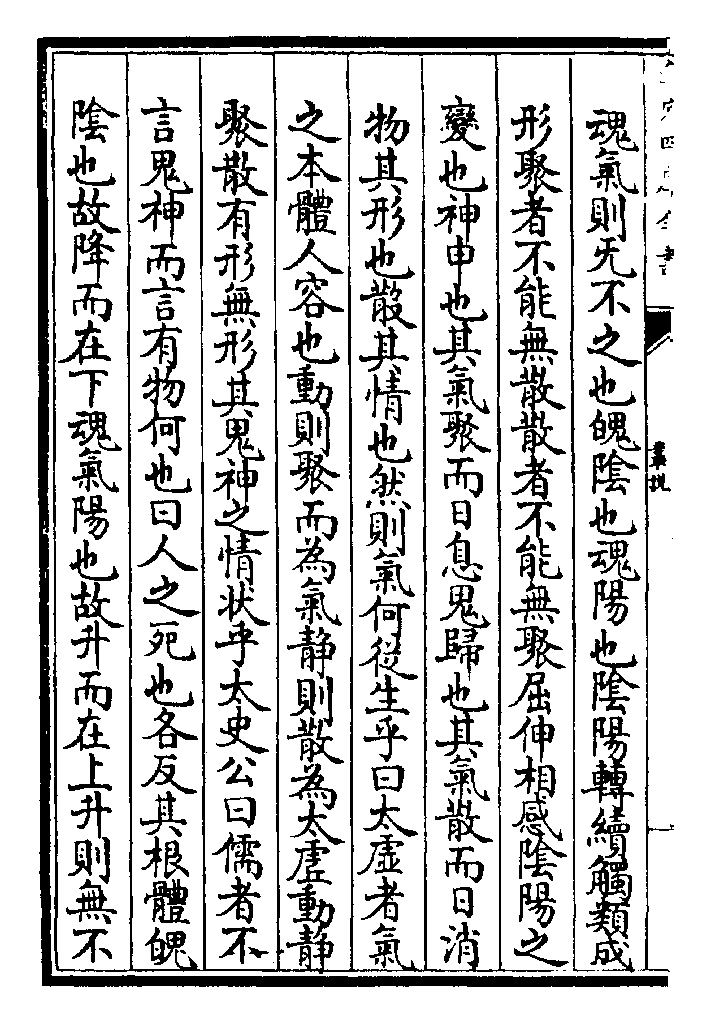 魂氣則无不之也魄陰也魂陽也陰陽轉續觸類成
形聚者不能無散散者不能無聚屈伸相感陰陽之
變也神申也其氣聚而日息鬼歸也其氣散而日消
物其形也散其情也然則氣何從生乎曰太虛者氣
之本體人容也動則聚而為氣静則散為太虛動静
聚散有形無形其鬼神之情狀乎太史公曰儒者不
言鬼神而言有物何也曰人之死也各反其根體魄
陰也故降而在下魂氣陽也故升而在上升則無不